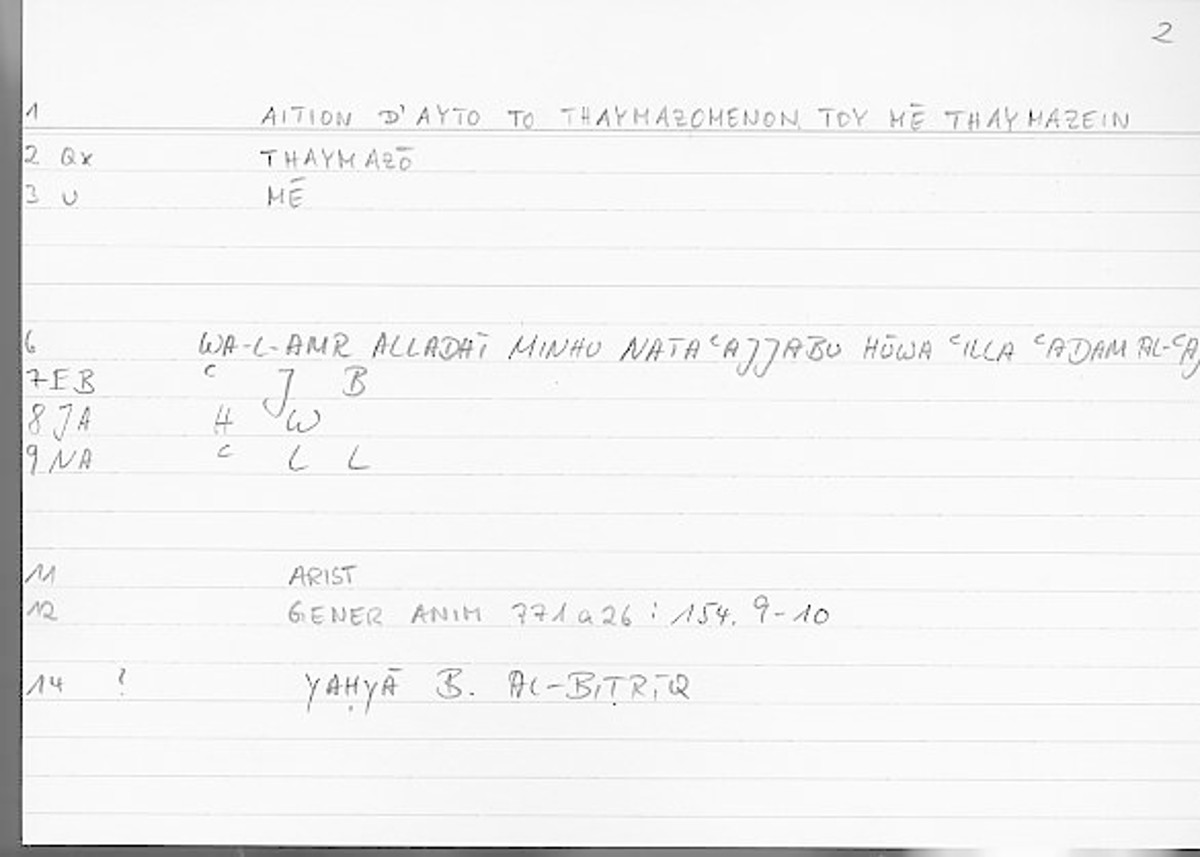 2
1 AITION D'AYTO TO THAYMAZOMENON TOY MĒ THAYMAZEIN
2 Qx THAYMAZŌ
3 U MĒ
6 WA-L-AMR ALLADHĪ MINHU NATAʿAJJABU HUWA ʿILLA ʿADAM AL-ʿAJ
7 EB ʿ J B
8 JA H W
9 NA ʿ L L
11 ARIST
12 GENER ANIM 771a26 : 154. 9-10
14 ? YAḤYĀ B. AL-BIṬRĪQ